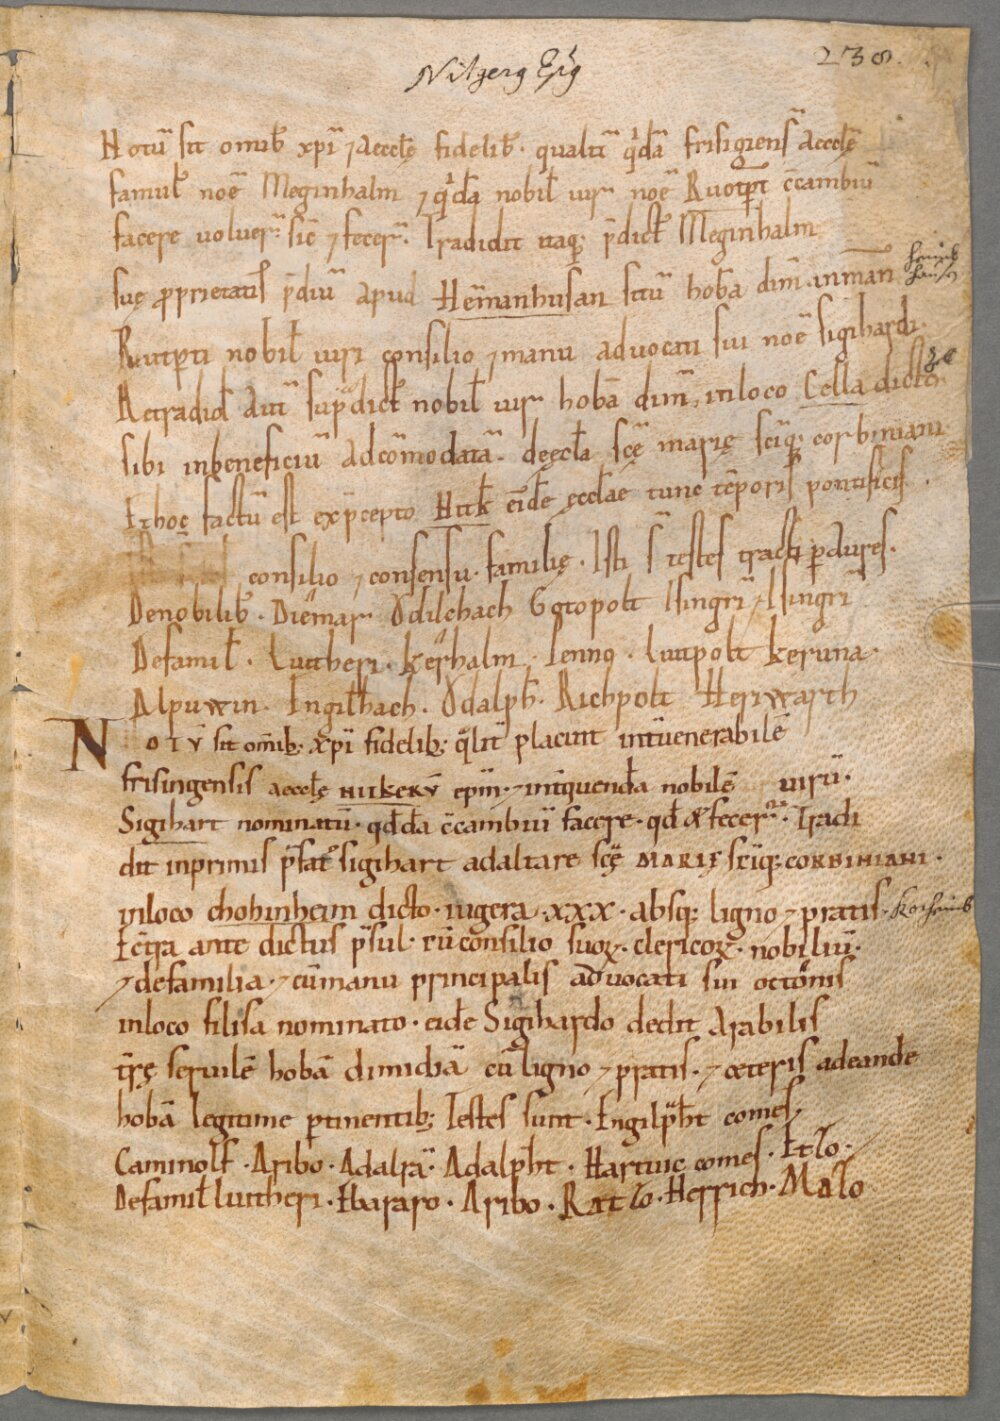 Nitgerg Epg
238.
Notū sit omib; xp̄i ⁊ aecclę fidelib; qualit̄ q̇dā frisigiens̄ aecclę
famul̄ noē Meginhalm ⁊ q̇dā nobil̄ uir noē Ruotp̄t c̄cambiū
facere uoluer̄ sic̄ ⁊ fecer̄. Tradidit itaq; p̄dict̄ Meginhalm
suę ꝓprietatis p̄diū apud Hem̄anhusan sitū hobā dim̄ . in man̄
Ruitp̄ti nobil̄ uiri consilio ⁊ manu aduocati sui noē sigihardi.
Ac tradid̄ aut̄ sup̄dict̄ nobil̄ uir hobā dim̄, in loco Cella dicto
sibi inbeneficiū adcōmodatā. de ęccl̄a scę̄ marię sc̄iq; corbiniani
Et hoc factū est ex p̄cepto Hitk̄ eid̄e ęccl̄ae tunc tēporis pontificis .
consilio ⁊ consensu familię . Isti s̄ testes tracti p̄ aures.
De nobilib; . Diem̄ar Odilchach Gotopolt Isingrī ⁊ Isingrī
De famil̄ . Luitheri . kerhalm . Ienno . Liutpolt keruna.
Alpuwin . Engilhach . Odalp̄h . Richpolt Heriwarth
NOTV sit omīb; xp̄i fidelib; q̄lit̄ placuit int̄ uenerabilē
frisingensis aecclę NITKERV̄ ep̄m . ⁊ int̄ quend̄a nobilē uirū .
Sigihart nominatū . qd̄dā c̄cambiū facere . qd̄ & fecer̄ . Tradi
dit inprimis p̄fat̄ sigihart ad altare scę̄ MARIĘ sc̄iq; CORBINIANI .
in loco chohinheim dicto . iugera . xxx . absq; ligno ⁊ pratis. Kochaimb
Ec̄tra ante dictus p̄sul . cū consilio suoꝝ . clericoꝝ . nobiliū .
⁊ de familia . ⁊ cū manu principalis aduocati sui ottonis
in loco filisa nominato . eid̄e Sigihardo dedit arabilis
t̄rę seruilē hobā dimidiā cū ligno ⁊ pratis . ⁊ cęteris ad eand̄e
hobā legitime p̄tinentib; Testes sunt . Engilp̄ht comes
Caminolf . Aribo . Adalrā . Adalp̄ht . Hartuic comes . Etlo .
De famil̄ luitheri . Hararo . Aribo . Ratlo . Herrich . Malo